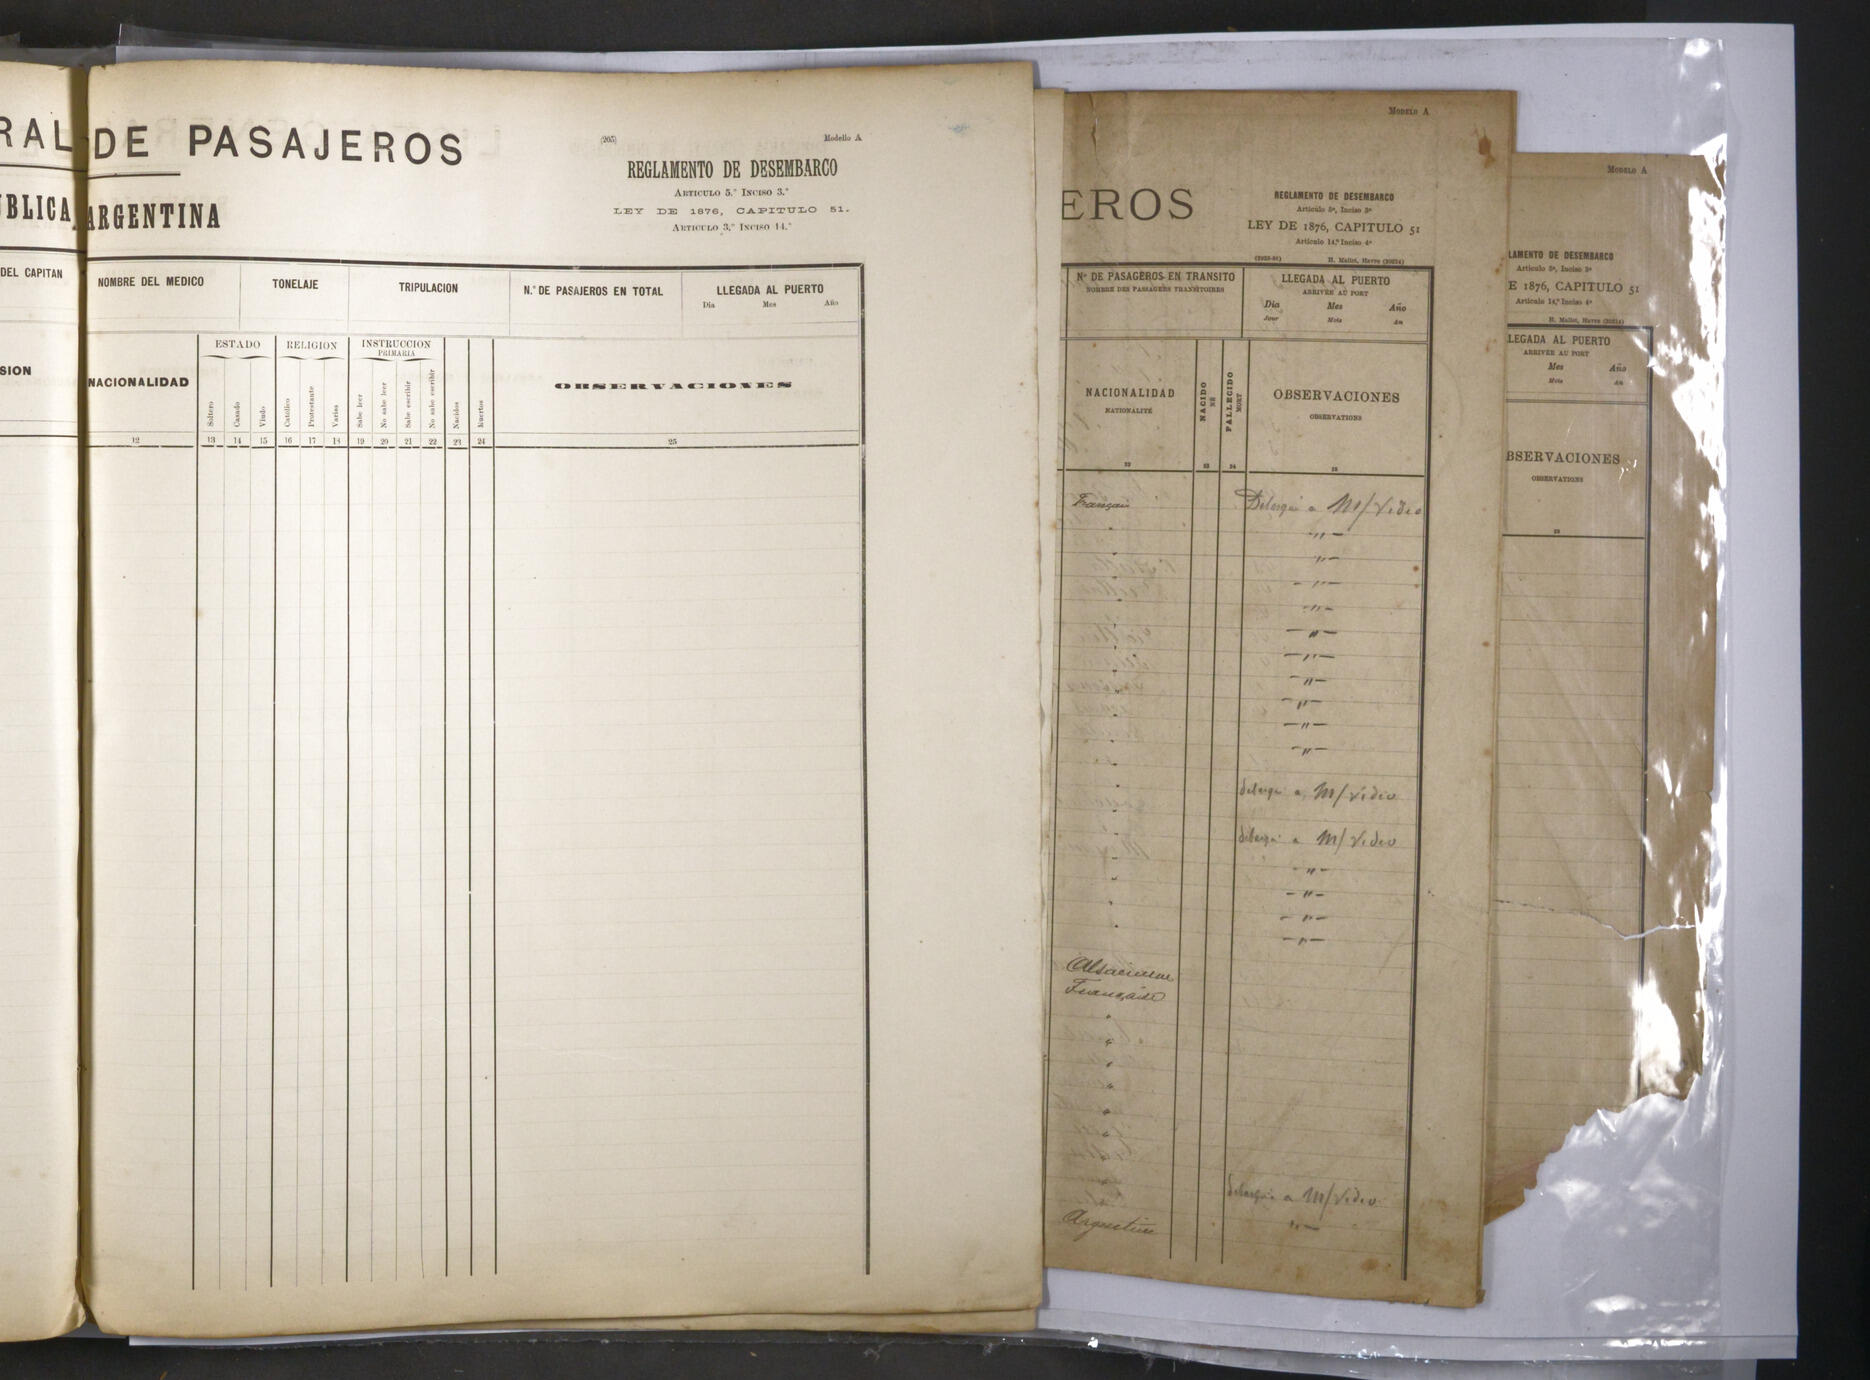 RAL DE PASAJEROS
ÚBLICA ARGENTINA
(205)
Modello A
REGLAMENTO DE DESEMBARCO
ARTICULO 5.° INCISO 3.°
LEY DE 1876, CAPITULO 51.
ARTICULO 3.° INCISO 14.°
DEL CAPITAN
NOMBRE DEL MEDICO
TONELAJE
TRIPULACION
N.° DE PASAJEROS EN TOTAL
LLEGADA AL PUERTO
Dia Mes Año
SION
NACIONALIDAD
ESTADO
RELIGION
INSTRUCCION
PRIMARIA
Soltero
Casado
Viudo
Católico
Protestante
Varias
Sabe leer
No sabe leer
Sabe escribir
No sabe escribir
Nacidos
Muertos
OBSERVACIONES
12 13 14 15 16 17 18 19 20 21 22 23 24 25
MODELO A
EROS
REGLAMENTO DE DESEMBARCO
Artículo 5º, Inciso 3º
LEY DE 1876, CAPITULO 51
Artículo 14,º Inciso 4º
H. Mallet, Havre (20214)
Nº DE PASAGEROS EN TRANSITO
NOMBRE DES PASSAGERS TRANSITOIRES
LLEGADA AL PUERTO
ARRIVÉE AU PORT
Dia Mes Año
Jour Mois An
NACIONALIDAD
NATIONALITÉ
NACIDO
NÉ
FALLECIDO
MORT
OBSERVACIONES
OBSERVATIONS
Français
a M/Video
"
"
"
"
"
"
"
"
"
"
a M/Video
a M/Video
"
"
"
"
Alsacienne
Française
a M/Video
Argentine "
MODELO A
LAMENTO DE DESEMBARCO
Artículo 5º, Inciso 3º
E 1876, CAPITULO 51
Artículo 14,º Inciso 4º
H. Mallet, Havre (20214)
LLEGADA AL PUERTO
ARRIVÉE AU PORT
Mes Año
Mois An
BSERVACIONES
OBSERVATIONS